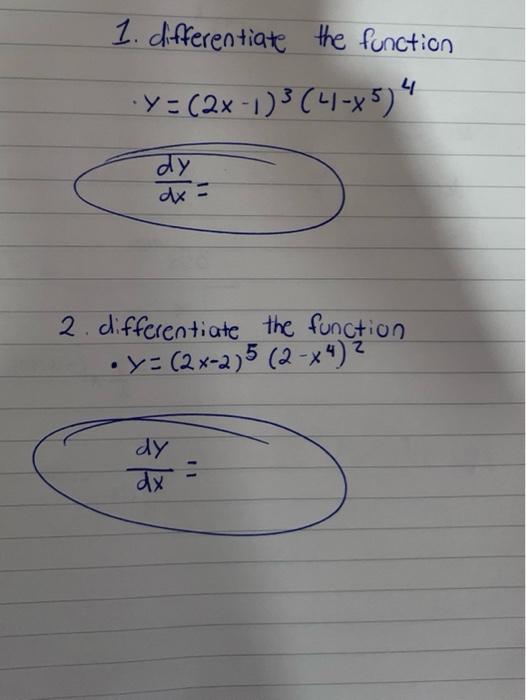 1. differentiate the function
· y = (2x-1)³ (4-x⁵)⁴
dy
dx =
2. differentiate the function
• y = (2x-2)⁵ (2-x⁴)²
dy
dx =